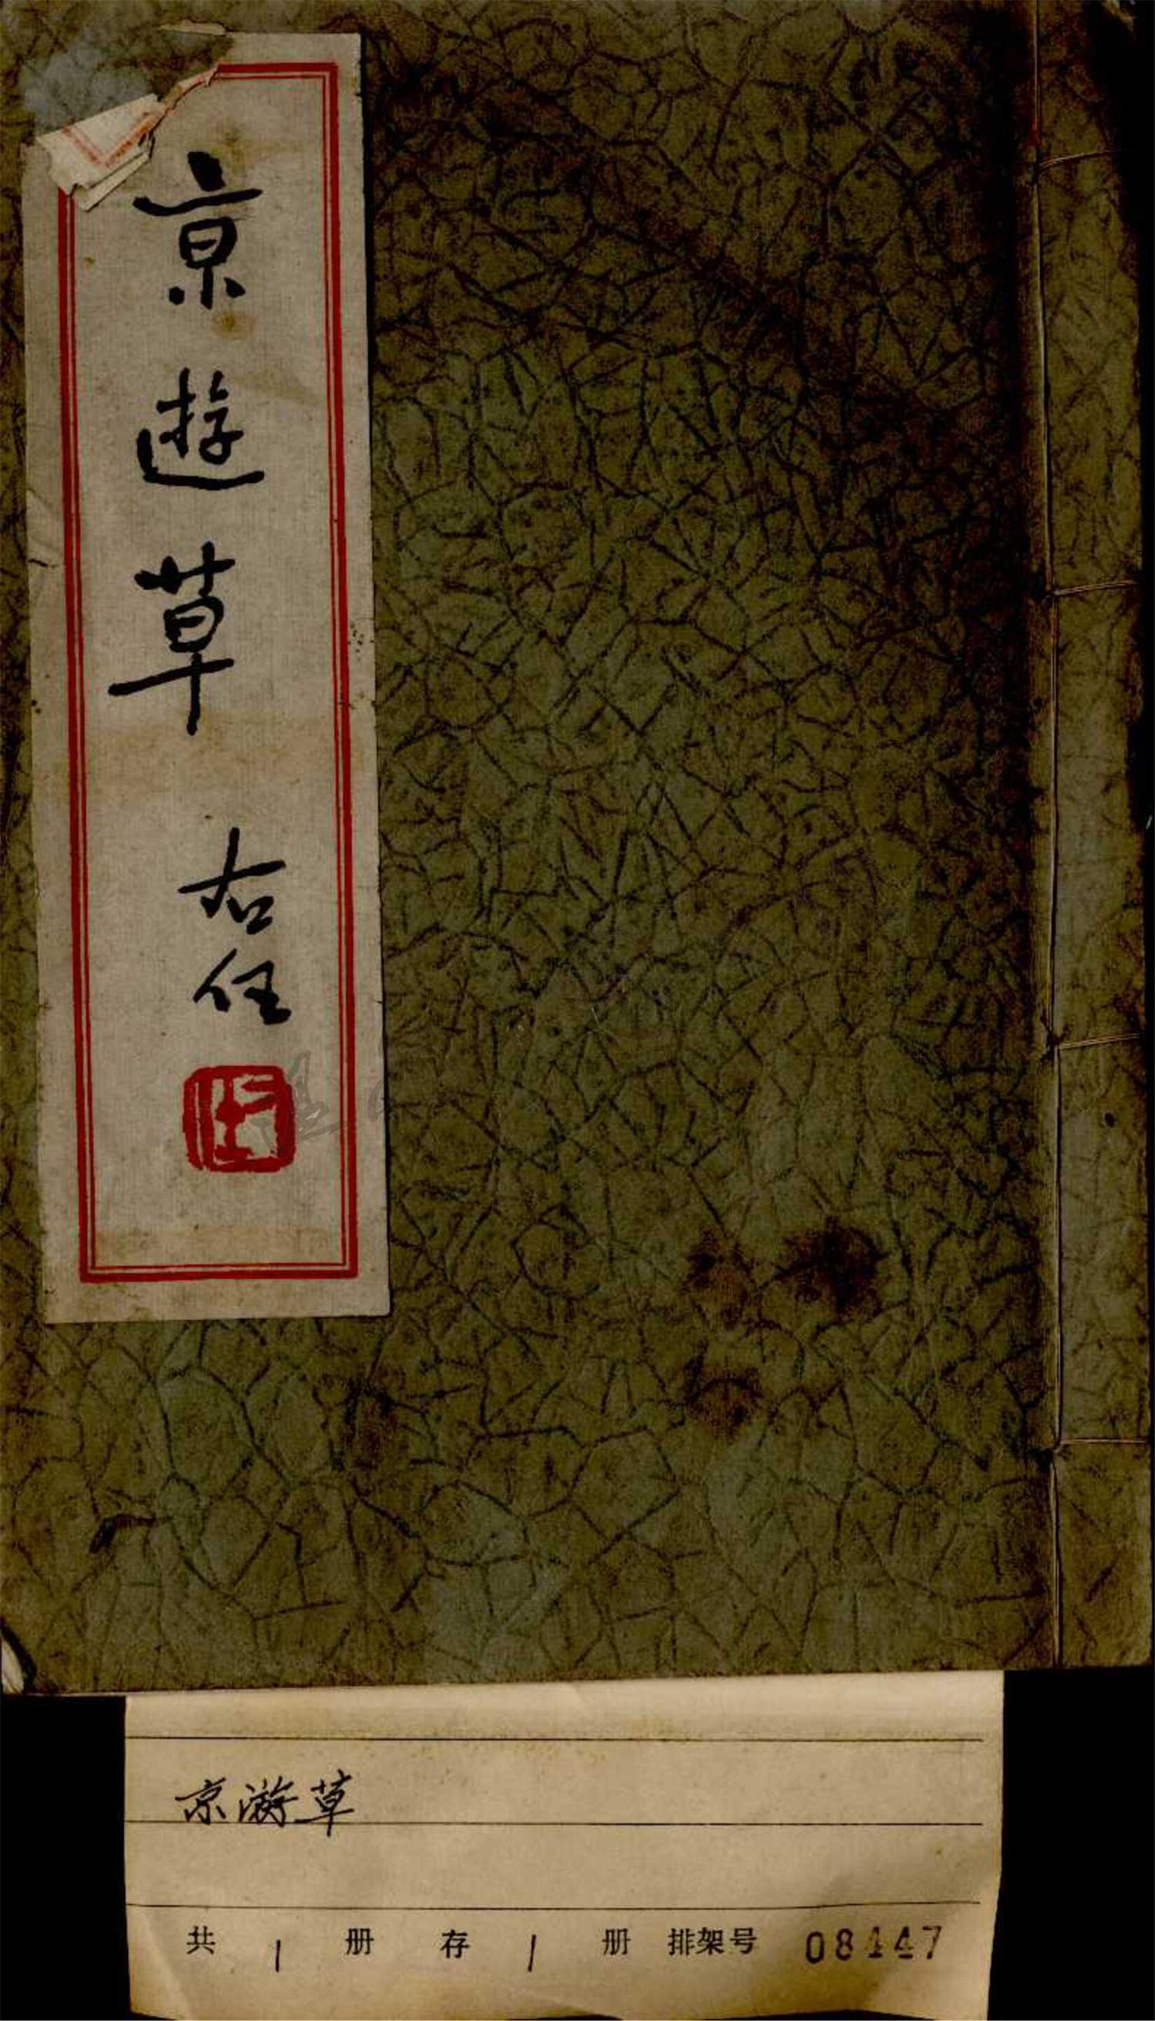 京遊草
右任
京游草
共 1 册 存 1 册 排架号 08447